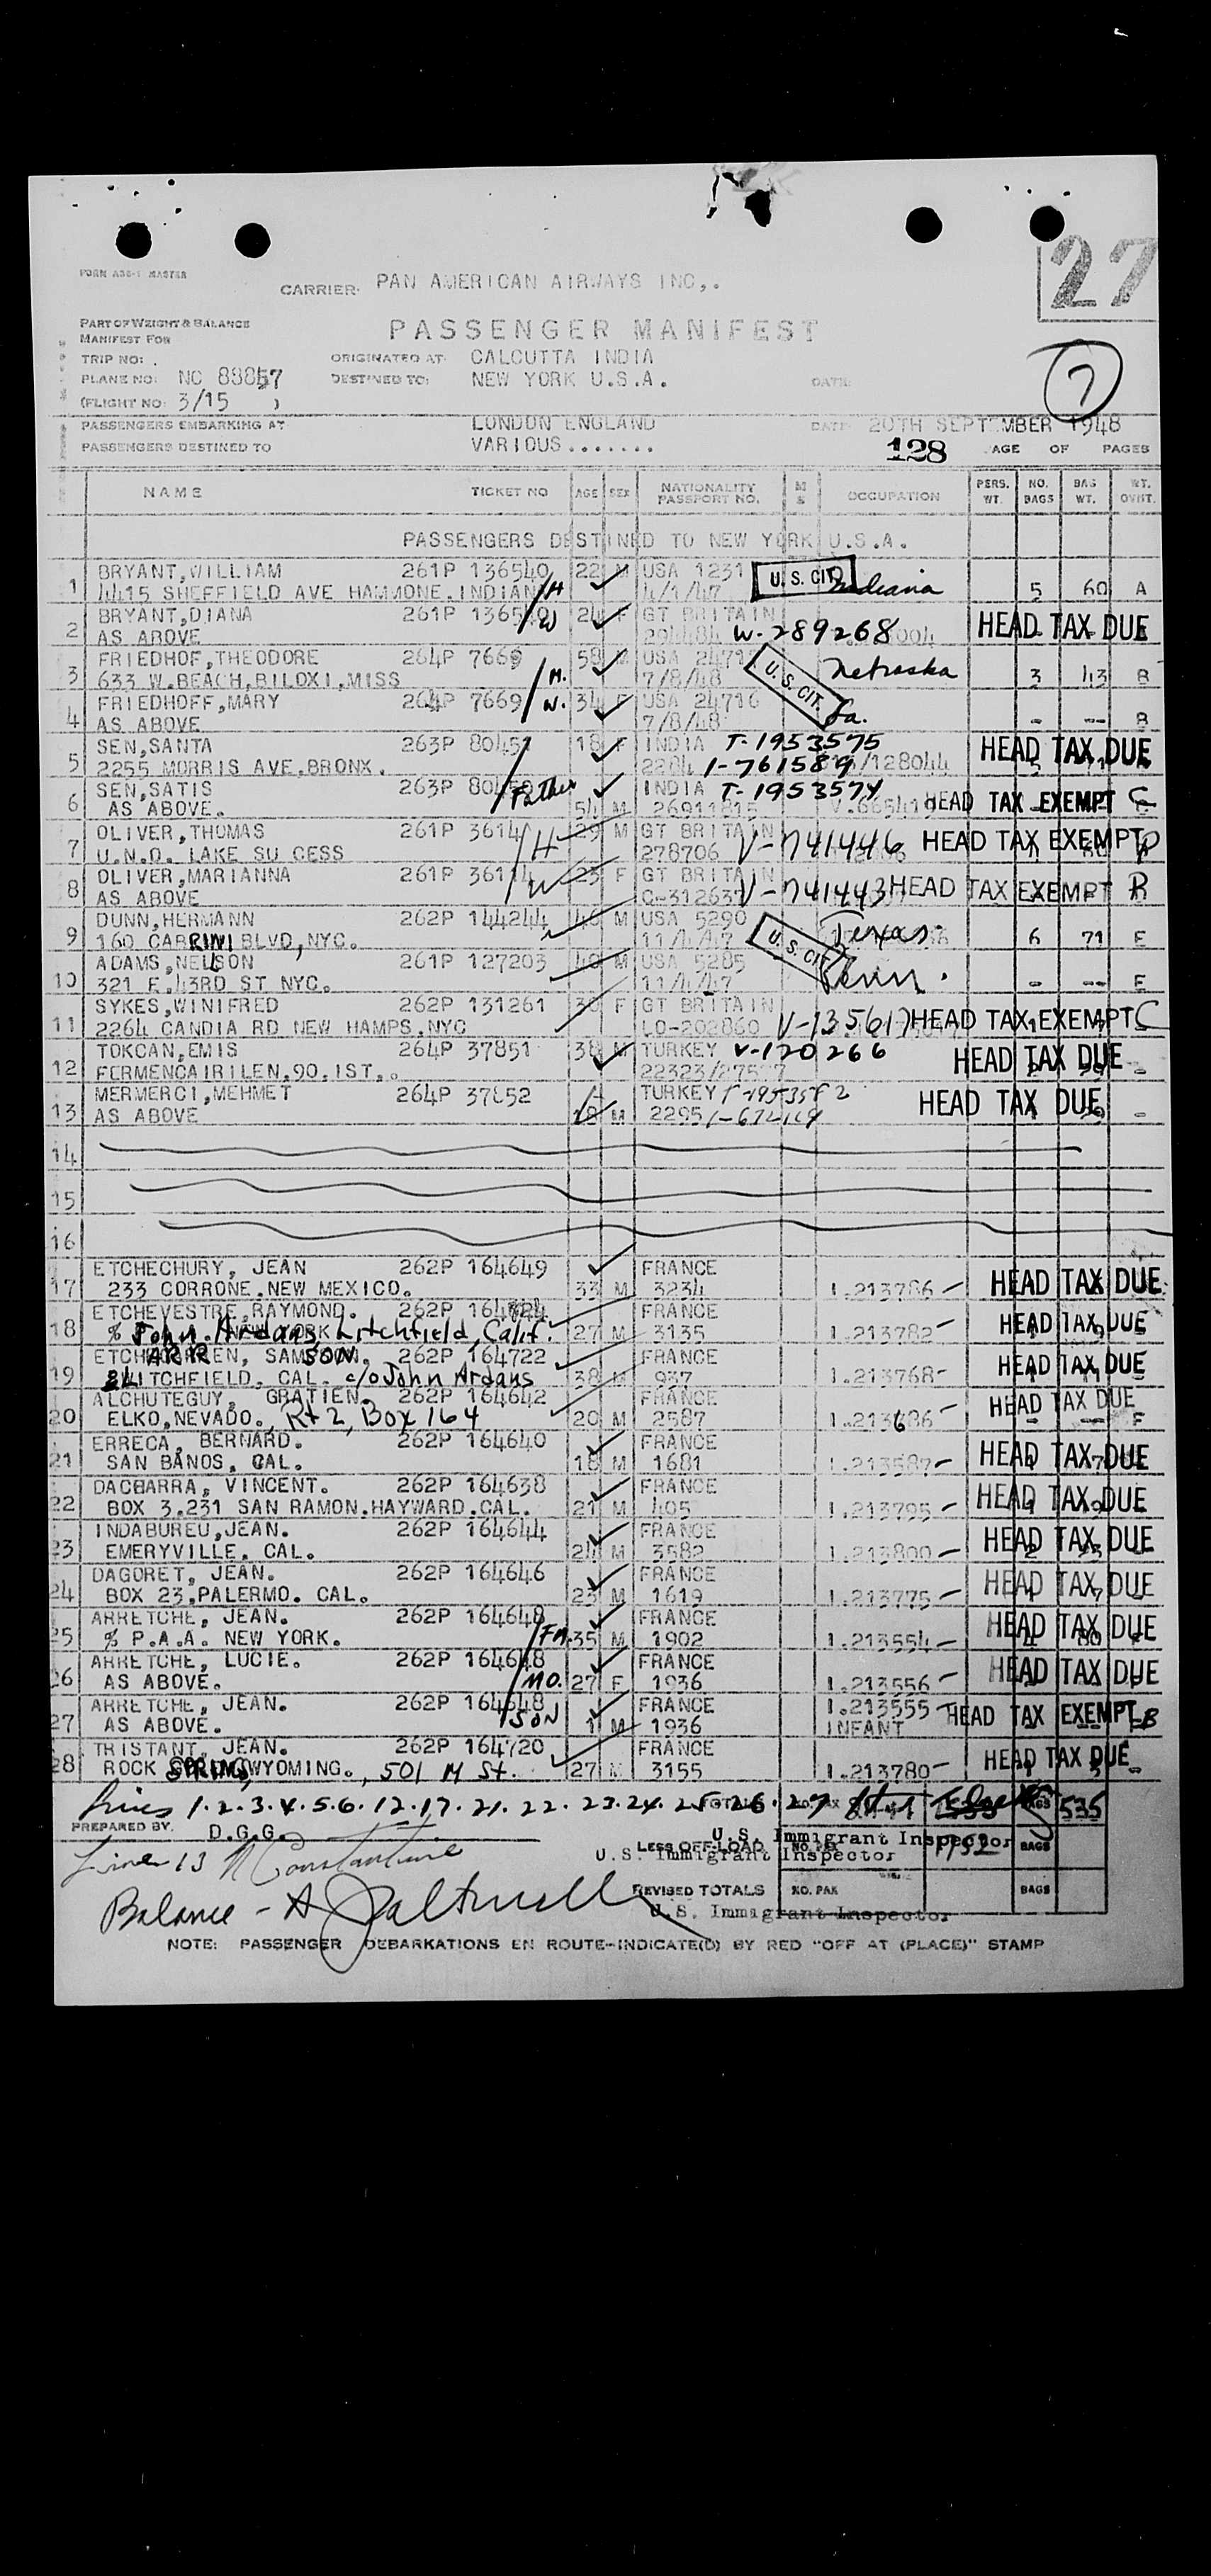 27
FORM
MASTER
CARRIER: PAN AMERICAN AIRWAYS INC,.
PART OF WEIGHT & BALANCE
MANIFEST FOR
PASSENGER MANIFEST
TRIP NO: .
ORIGINATED AT: CALCUTTA INDIA
PLANE NO: NC 88857 DESTINED TO: NEW YORK U.S.A. DATE:
7
(FLIGHT NO: 3/15 )
PASSENGERS EMBARKING AT LONDON ENGLAND DATE: 20TH SEPTEMBER 1948
PASSENGERS DESTINED TO VARIOUS....... 128 PAGE OF PAGES
NAME TICKET NO AGE SEX NATIONALITY PASSPORT NO. OCCUPATION PERS. WT. NO. BAGS BAG WT. WT.
PASSENGERS DESTINED TO NEW YORK U.S.A.
1 BRYANT,WILLIAM 261P 136540 22 M USA 1231 U.S. CIT.
4415 SHEFFIELD AVE HAMMONE.INDIAN H 4/1/47 Indiana 5 60 A
2 BRYANT,DIANA 261P 24 F GT BRITAIN
AS ABOVE W W-289268 HEAD TAX DUE
3 FRIEDHOF,THEODORE 264P 7669 58 M USA U.S. CIT. Nebraska
633 W.BEACH.BILOXI,MISS H. 7/8/48 3 43 B
4 FRIEDHOFF,MARY 264P 7669 W. 34 F USA 24716
AS ABOVE 7/8/48 - -- B
5 SEN,SANTA 263P 80451 18 F INDIA T-1953575
2255 MORRIS AVE.BRONX. 1-761589 /128044 HEAD TAX DUE
6 SEN,SATIS 263P Father INDIA T-1953574
AS ABOVE. 54 M 26911815 HEAD TAX EXEMPT C
7 OLIVER,THOMAS 261P 3614 29 M GT BRITAIN
U.N.O. LAKE SU CESS H 278706 V-741446 HEAD TAX EXEMPT
8 OLIVER,MARIANNA 261P W 23 F GT BRITAIN
AS ABOVE V-741443 HEAD TAX EXEMPT
9 DUNN,HERMANN 262P 144244 M USA 5290 U.S. CIT. Texas
160 CABRINI BLVD,NYC. 11/4/47 6 71 E
10 ADAMS,NELSON 261P 127203 40 M USA 5285
321 E.43RD ST NYC. 11/4/47 - -- E
11 SYKES,WINIFRED 262P 131261 F GT BRITAIN
2264 CANDIA RD NEW HAMPS.NYC LO-202860 V-135617 HEAD TAX EXEMPT C
12 TOKCAN,EMIS 264P 37851 38 M TURKEY V-120266
FERMENCAIRILEN.90.IST. HEAD TAX DUE -
13 MERMERCI,MEHMET 264P 37852 TURKEY
AS ABOVE M 2295 HEAD TAX DUE -
14
15
16
17 ETCHECHURY, JEAN 262P 164649 FRANCE
233 CORRONE.NEW MEXICO. 33 M 3234 1.213786 - HEAD TAX DUE
18 ETCHEVESTRE,RAYMOND. 262P FRANCE
% John Ardans, Litchfield, Calif. 27 M 3135 1.213782 - HEAD TAX DUE
19 SAMSON. 262P 164722 FRANCE
LITCHFIELD. CAL. c/o John Ardans 38 M 937 1.213768 - HEAD TAX DUE
20 ALCHUTEGUY, GRATIEN. 262P 164642 FRANCE
ELKO,NEVADO. Rt 2, Box 164 20 M 2587 1.213686 - HEAD TAX DUE
21 ERRECA, BERNARD. 262P 164640 FRANCE
SAN BANOS, CAL. 18 M 1681 1.213587 - HEAD TAX DUE
22 DACHARRA, VINCENT. 262P 164638 FRANCE
BOX 3.231 SAN RAMON.HAYWARD.CAL. 21 M 405 1.213795 - HEAD TAX DUE
23 INDABUREU,JEAN. 262P 164644 FRANCE
EMERYVILLE. CAL. 24 M 3582 1.213800 - HEAD TAX DUE
24 DAGORET, JEAN. 262P 164646 FRANCE
BOX 23.PALERMO. CAL. 23 M 1619 1.213775 - HEAD TAX DUE
25 ARRETCHE, JEAN. 262P 164648 FRANCE
% P.A.A. NEW YORK. FA. 35 M 1902 1.213554 - HEAD TAX DUE
26 ARRETCHE, LUCIE. 262P 164648 FRANCE
AS ABOVE. MO. 27 F 1936 1.213556 - HEAD TAX DUE
27 ARRETCHE, JEAN. 262P 164648 FRANCE 1.213555 -
AS ABOVE. SON 1 M 1936 INFANT HEAD TAX EXEMPT B
28 TRISTANT, JEAN. 262P 164720 FRANCE
ROCK SPRINGS WYOMING., 501 M St. 27 M 3155 1.213780 - HEAD TAX DUE
Lines 1.2.3.4.5.6.12.17.21.22.23.24.25.26.27 BAGS 535
PREPARED BY. D.G.G. U.S. Immigrant Inspector
Line 13 LESS OFF-LOAD U.S. Immigrant Inspector BAGS
Balance - REVISED TOTALS NO. PAX BAGS
U.S. Immigrant Inspector
NOTE: PASSENGER DEBARKATIONS EN ROUTE-INDICATE(D) BY RED "OFF AT (PLACE)" STAMP